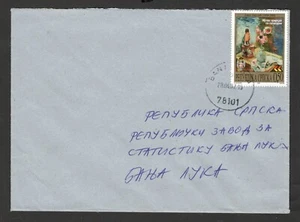 78101
РЕПУБЛИКА СРПСКА
РЕПУБЛИЧКИ ЗАВОД ЗА
СТАТИСТИКУ БАЊА ЛУКА
БАЊА ЛУКА